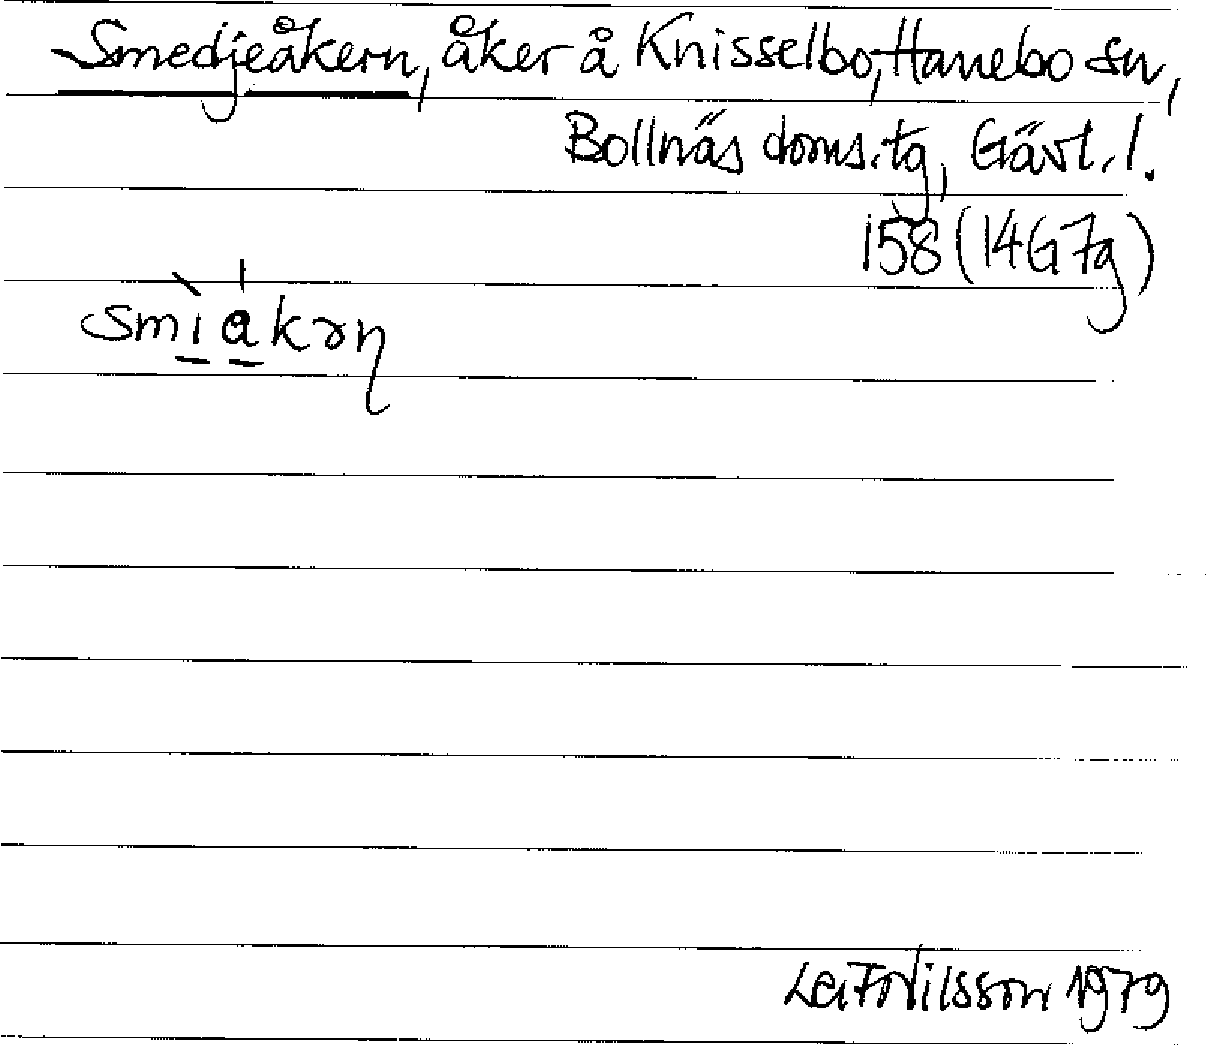 Smedjeåkern, åker å Knisselbo, Hanebo sn,
Bollnäs doms.tg, Gävl.l.
158 (14G7g)
smì̠a̠̍kəɳ
Leif Nilsson 1979